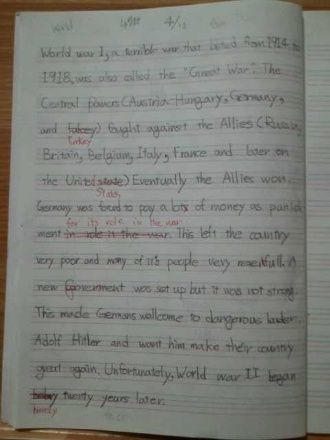 World
World war I, a terrible war that lasted from 1914 to
1918, was also called the "Great War". The
Central powers (Austria-Hungary, Germany,
and tukey) fought against the Allies (Russia,
Turkey
Britain, Belgium, Italy, France and later on
the United state) Eventually the Allies won.
State,
Germany was forced to pay a lots of money as punish
for its role in the war
ment in role is the war. This left the country
very poor and many of it's people very resentfull. A
new Government was set up but it was not strong.
This made Germans wellcome to dangerous leader
Adolf Hitler and want him make their country
great again. Unfortunately, World war II began
twenty years later.